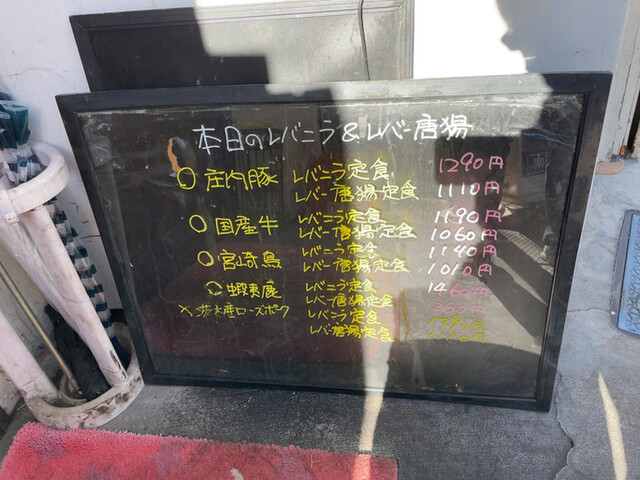 本日のレバニラ&レバー唐揚
○庄内豚 レバニラ定食 1290円
レバー唐揚定食 1110円
○国産牛 レバニラ定食 1190円
レバー唐揚定食 1060円
○宮崎鳥 レバニラ定食 1140円
レバー唐揚定食 1010円
○蝦夷鹿 レバニラ定食 1460円
レバー唐揚定食
×茨木産ローズポーク レバニラ定食
レバー唐揚定食